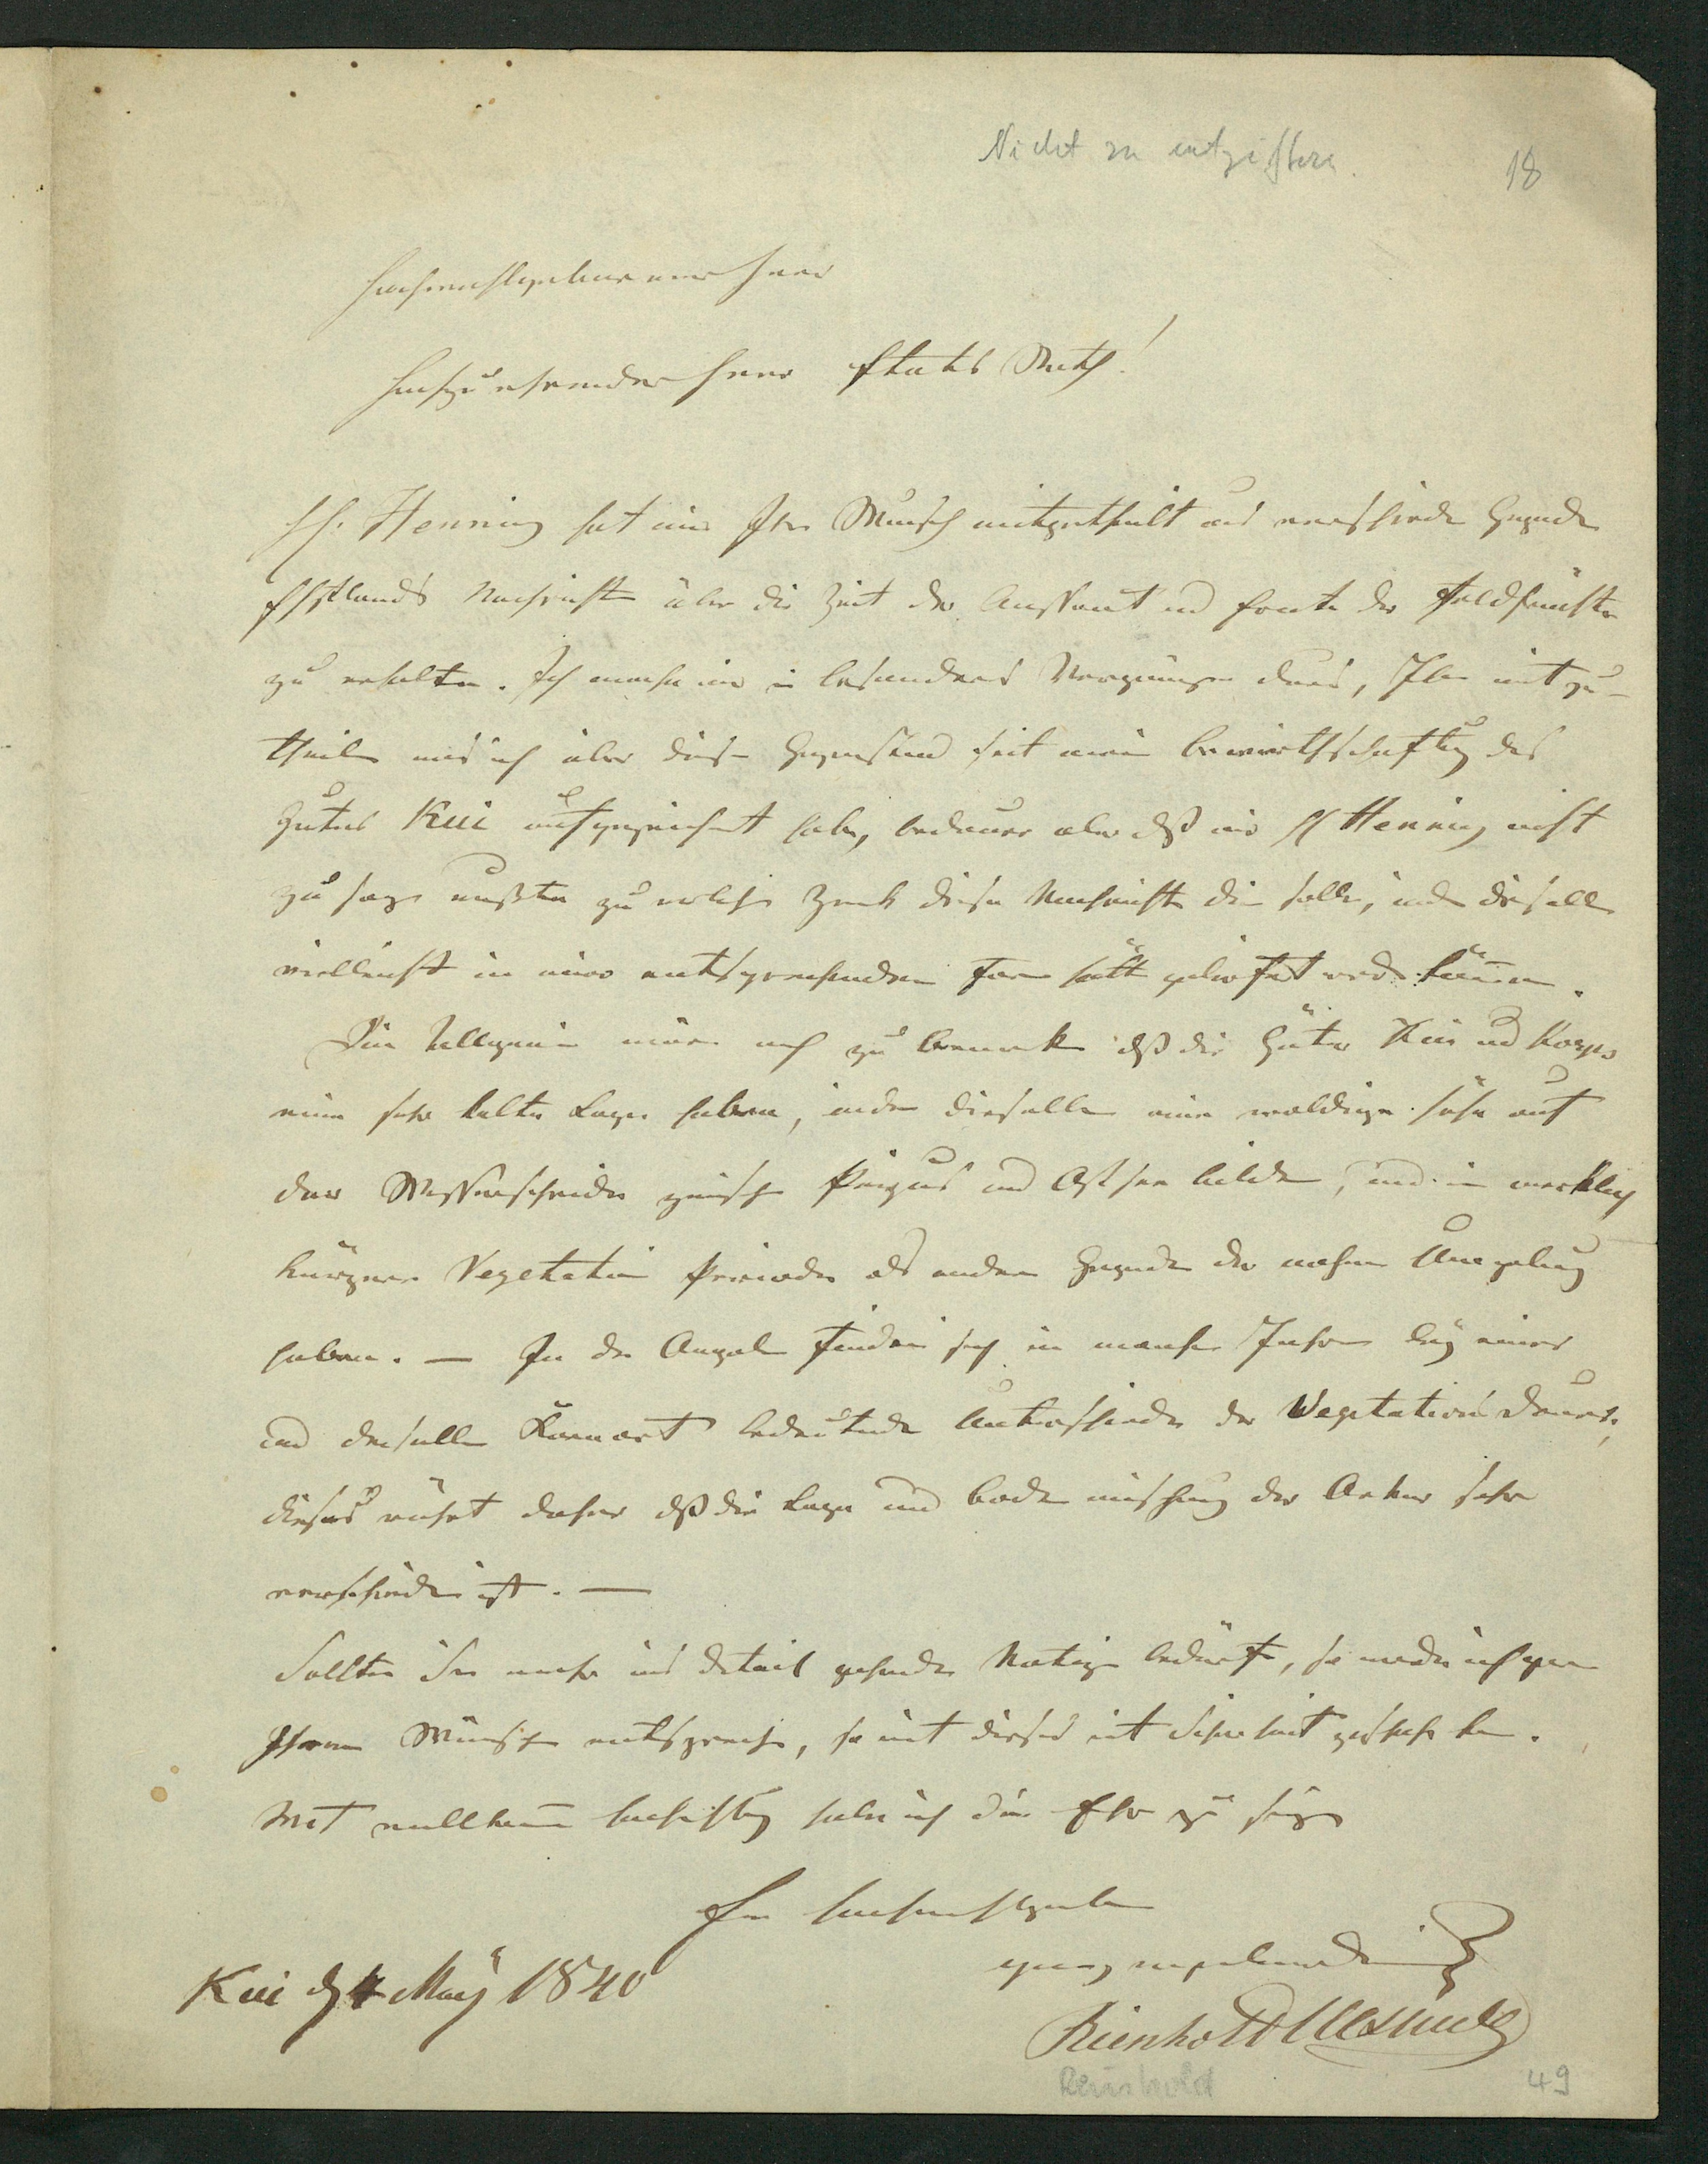 Nicht zu entziffern.
18
Hochwohlgeborener Herr
Hochzuehrender Herr Etats Rath!
H. Henning hat mir Ihren Wunsch mitgetheilt aus verschieden Gegenden
Ehstlands Nachrichten über die Zeit der Aussaat und Ernte der Feldfrüchte
zu erhalten. Ich mache mir ein besonderes Vergnügen draus, Ihnen mitzu-
theilen was ich über diesen Gegenstand seit meiner Bewirthschaftung des
Gutes Kui aufgezeichnet habe, bedaure aber daß mir H Henning nicht
zu sagen wußte zu welchem Zweck diese Nachrichten dienen sollen, indem dieselben
vielleicht in einer entsprechenderen Form hätten geliefert werden können.
Im Allgemeinen wäre noch zu bemerken daß die Güter Kui und Korps
eine sehr kalte Lage haben, indem dieselben eine waldige Höhe auf
der Wasserscheide zwischen Peipus und Ostsee bilden, und eine merklich
kürzere Vegetation Periode als andere Gegenden der nahen Umgebung
haben. — In den Angaben finden sich in manchen Jahren bey einer
und derselben Kornart bedeutende Unterschiede der Vegetations Dauer,
dieses rührt daher daß die Lage und Boden mischung der Aecker sehr
verschieden ist. —
Sollten Sie mehr ins Detail gehende Notizen bedürfen, so werde ich gern
Ihrem Wunsche entsprechen, so weit dieses mit Sicherheit geschehen kann.
Mit vollkommener Hochachtung habe ich die Ehre zu seyn
Ew Hochwohlgeboren
ganz ergebenster
Kui d 4 May 1840
Reinhold
Reinhold
49